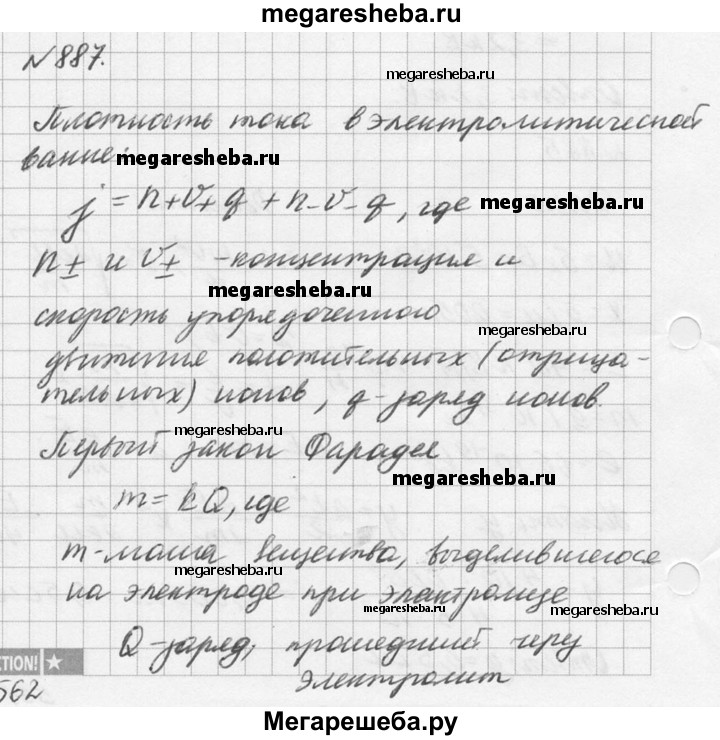 megaresheba.ru
№887.
megaresheba.ru
Плотность тока в электролитической
ванне: megaresheba.ru
j = n+v+q + n-v-q, где megaresheba.ru
n± и v± - концентрация и
megaresheba.ru
скорость упорядоченного
megaresheba.ru
движения положительных (отрица-
тельных) ионов, q-заряд ионов.
megaresheba.ru
Первый закон Фарадея
megaresheba.ru
m = kQ, где
m-масса вещества, выделившегося
megaresheba.ru
на электроде при электролизе
megaresheba.ru
megaresheba.ru
Q-заряд, прошедший через
CTION! ★
электролит
562
Мегарешеба.ру